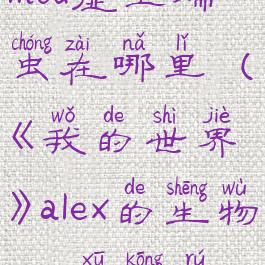 chóng zài nǎ lǐ
虫在哪里（
wǒ de shì jiè
《我的世界
de shēng wù
》alex的生物
xū kōng rú